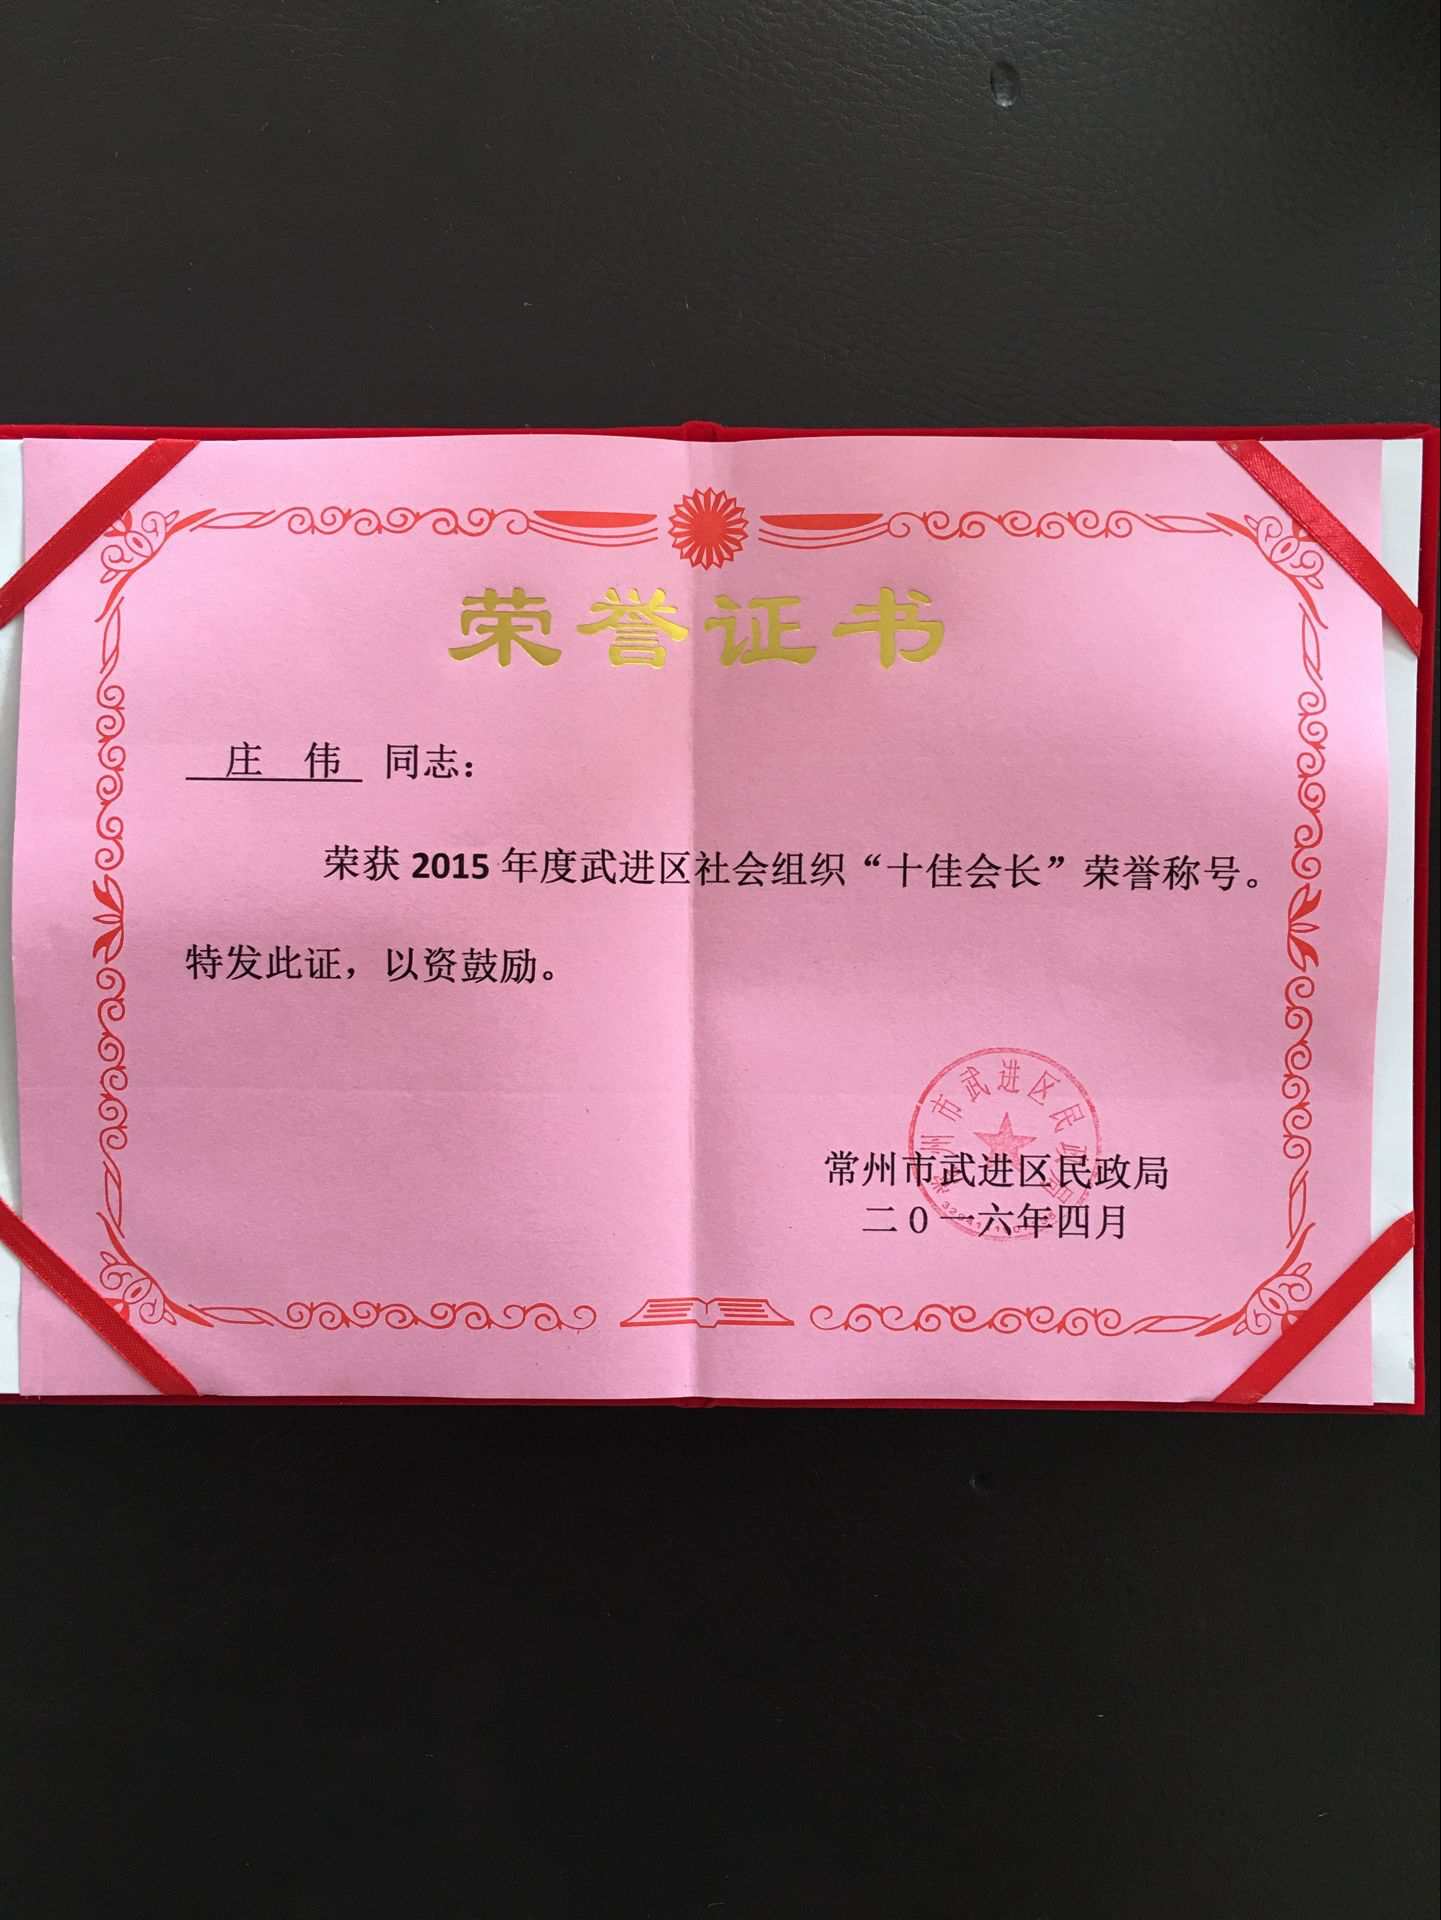 荣誉证书
庄 伟 同志：
荣获 2015 年度武进区社会组织“十佳会长”荣誉称号。
特发此证，以资鼓励。
常州市武进区民政局
常州市武进区民政局
二0一六年四月